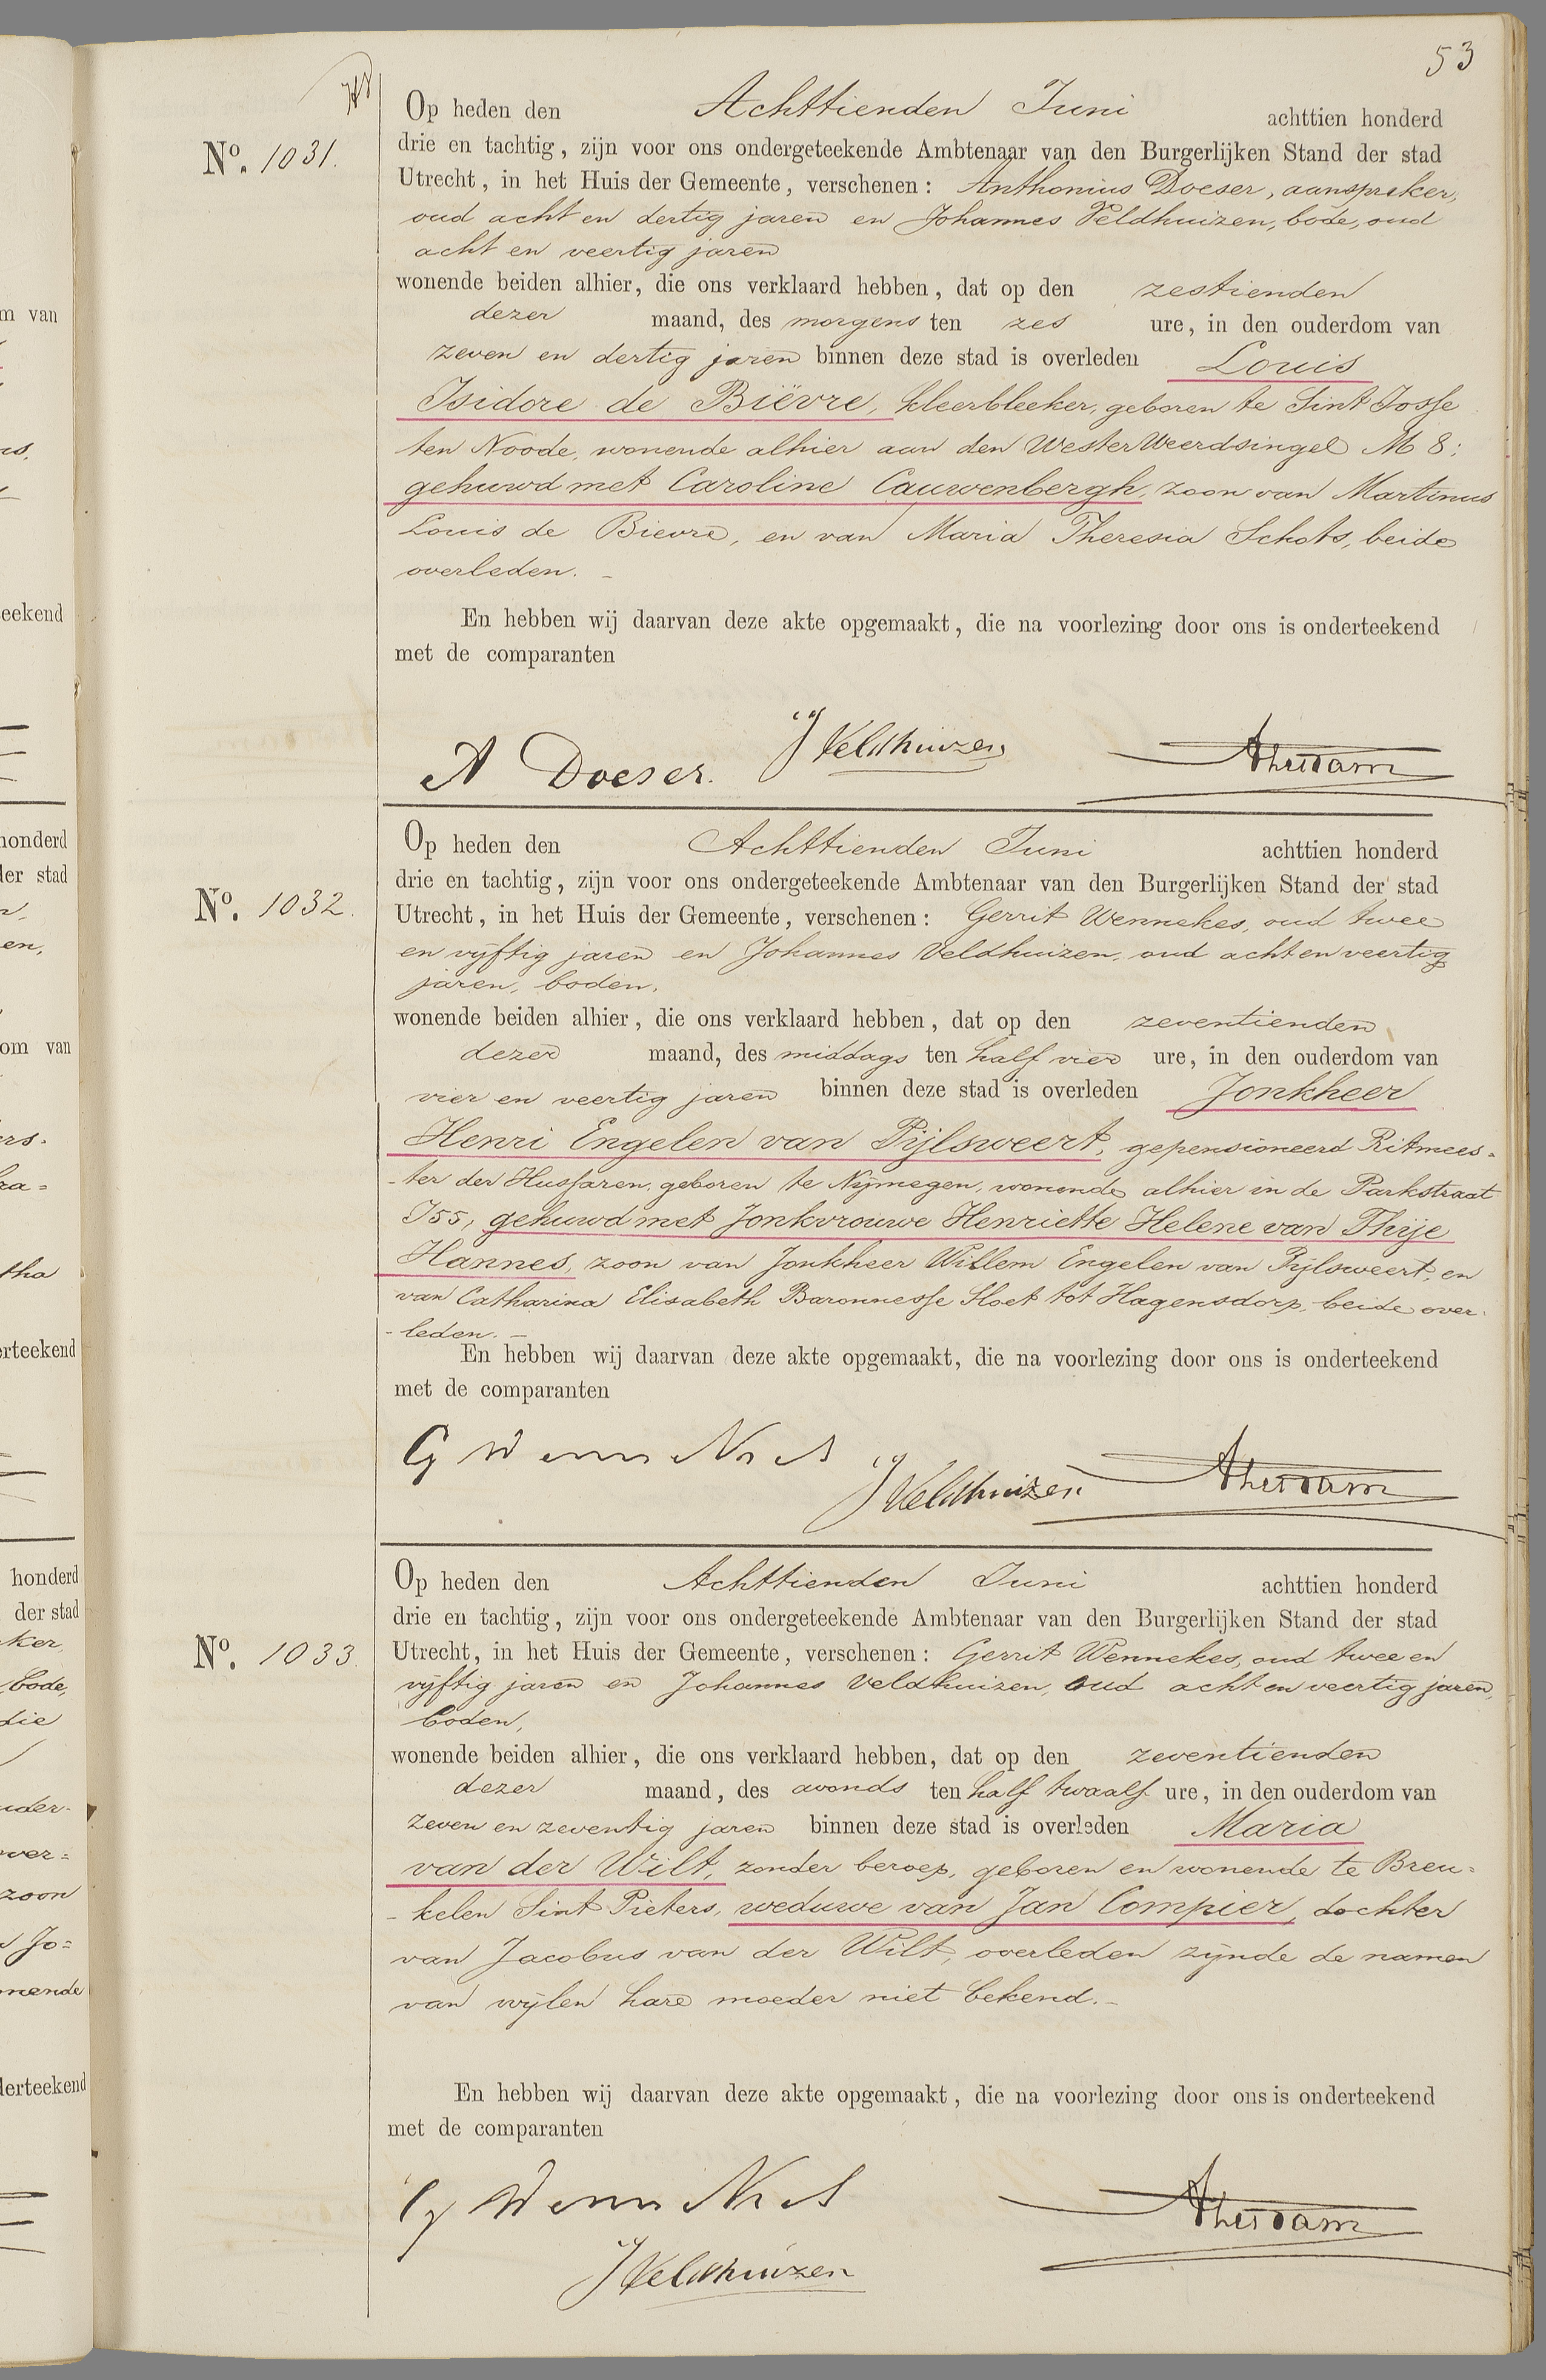 53
Op heden den Achttienden Juni achttien honderd
No. 1031.
drie en tachtig, zijn voor ons ondergeteekende Ambtenaar van den Burgerlijken Stand der stad
Utrecht, in het Huis der Gemeente, verschenen: Anthonius Doeser, aanspreker,
oud acht en dertig jaren en Johannes Veldhuizen, bode, oud
acht en veertig jaren
wonende beiden alhier, die ons verklaard hebben, dat op den zestienden
dezer maand, des morgens ten zes ure, in den ouderdom van
zeven en dertig jaren binnen deze stad is overleden Louis
Isidore de Bièvre, kleerbleeker, geboren te Sint Josse
ten Noode, wonende alhier aan den Wester Weerdsingel M 8;
gehuwd met Caroline Cauwenbergh, zoon van Martinus
Louis de Bievre, en van Maria Theresia Schots, beide
overleden. -
En hebben wij daarvan deze akte opgemaakt, die na voorlezing door ons is onderteekend
met de comparanten
A Doeser. J Veldhuizen
Op heden den Achttienden Juni achttien honderd
No. 1032.
drie en tachtig, zijn voor ons ondergeteekende Ambtenaar van den Burgerlijken Stand der stad
Utrecht, in het Huis der Gemeente, verschenen: Gerrit Wennekes, oud twee
en vijftig jaren en Johannes Veldhuizen, oud acht en veertig
jaren, boden,
wonende beiden alhier, die ons verklaard hebben, dat op den zeventienden
dezer maand, des middags ten half vier ure, in den ouderdom van
vier en veertig jaren binnen deze stad is overleden Jonkheer
Henri Engelen van Pijlsweert, gepensioneerd Ritmees-
-ter der Hussaren, geboren te Nijmegen, wonende alhier in de Parkstraat
I55, gehuwd met Jonkvrouwe Henriette Helene van Thije
Hannes, zoon van Jonkheer Willem Engelen van Pijlsweert, en
van Catharina Elisabeth Baronnesse Sloet tot Hagensdorp, beide over-
-leden. -
En hebben wij daarvan deze akte opgemaakt, die na voorlezing door ons is onderteekend
met de comparanten
J Veldhuizen
Op heden den Achttienden Juni achttien honderd
No. 1033.
drie en tachtig, zijn voor ons ondergeteekende Ambtenaar van den Burgerlijken Stand der stad
Utrecht, in het Huis der Gemeente, verschenen: Gerrit Wennekes, oud twee en
vijftig jaren en Johannes Veldhuizen, oud acht en veertig jaren,
boden,
wonende beiden alhier, die ons verklaard hebben, dat op den zeventienden
dezer maand, des avonds ten half twaalf ure, in den ouderdom van
zeven en zeventig jaren binnen deze stad is overleden Maria
van der Wilt, zonder beroep, geboren en wonende te Breu-
-kelen Sint Pieters, weduwe van Jan Compier, dochter
van Jacobus van der Wilt, overleden zijnde de namen
van wijlen hare moeder niet bekend. -
En hebben wij daarvan deze akte opgemaakt, die na voorlezing door ons is onderteekend
met de comparanten
J Veldhuizen